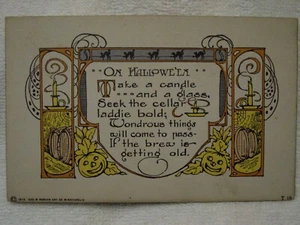 On Hallowe'en
Take a candle
and a glass,
Seek the cellar
laddie bold;
Wondrous things
will come to pass
If the brew is
getting old.